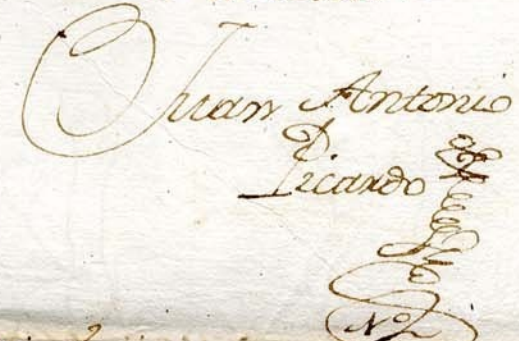 Juan Antonio
Picardo